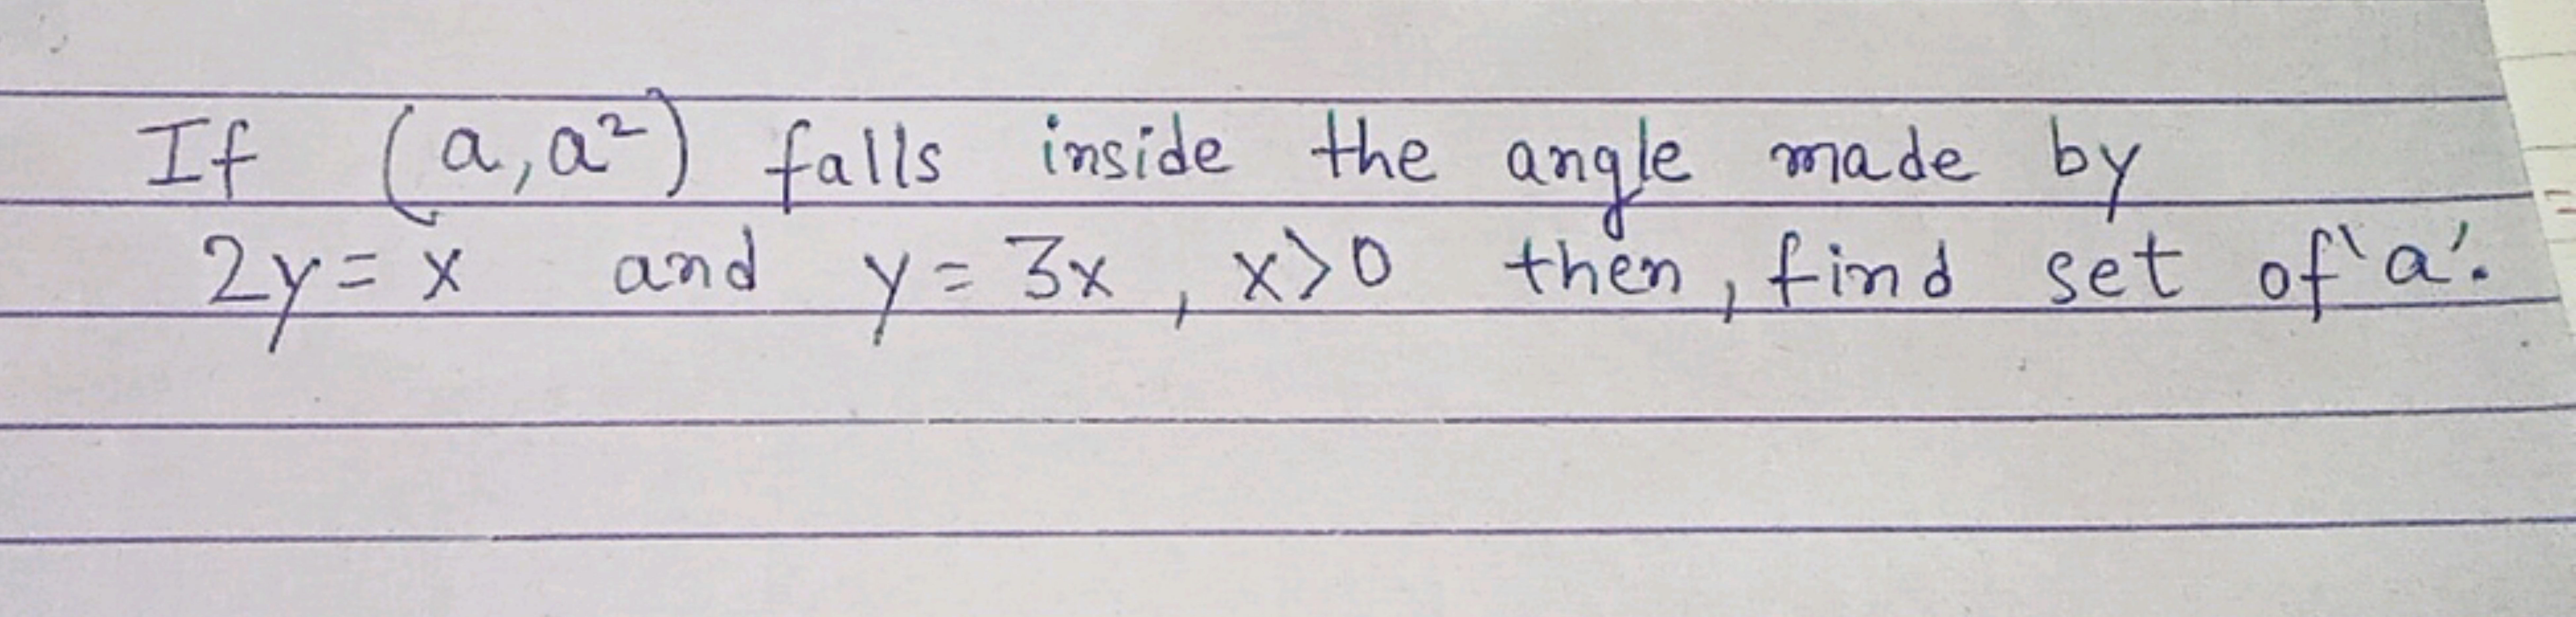 If (a, a²) falls inside the angle made by
2y = x and y = 3x, x>0 then, find set of 'a'.